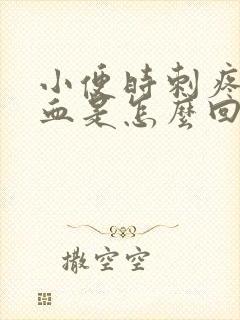 小便時刺疼
血是怎麼回
撒空空